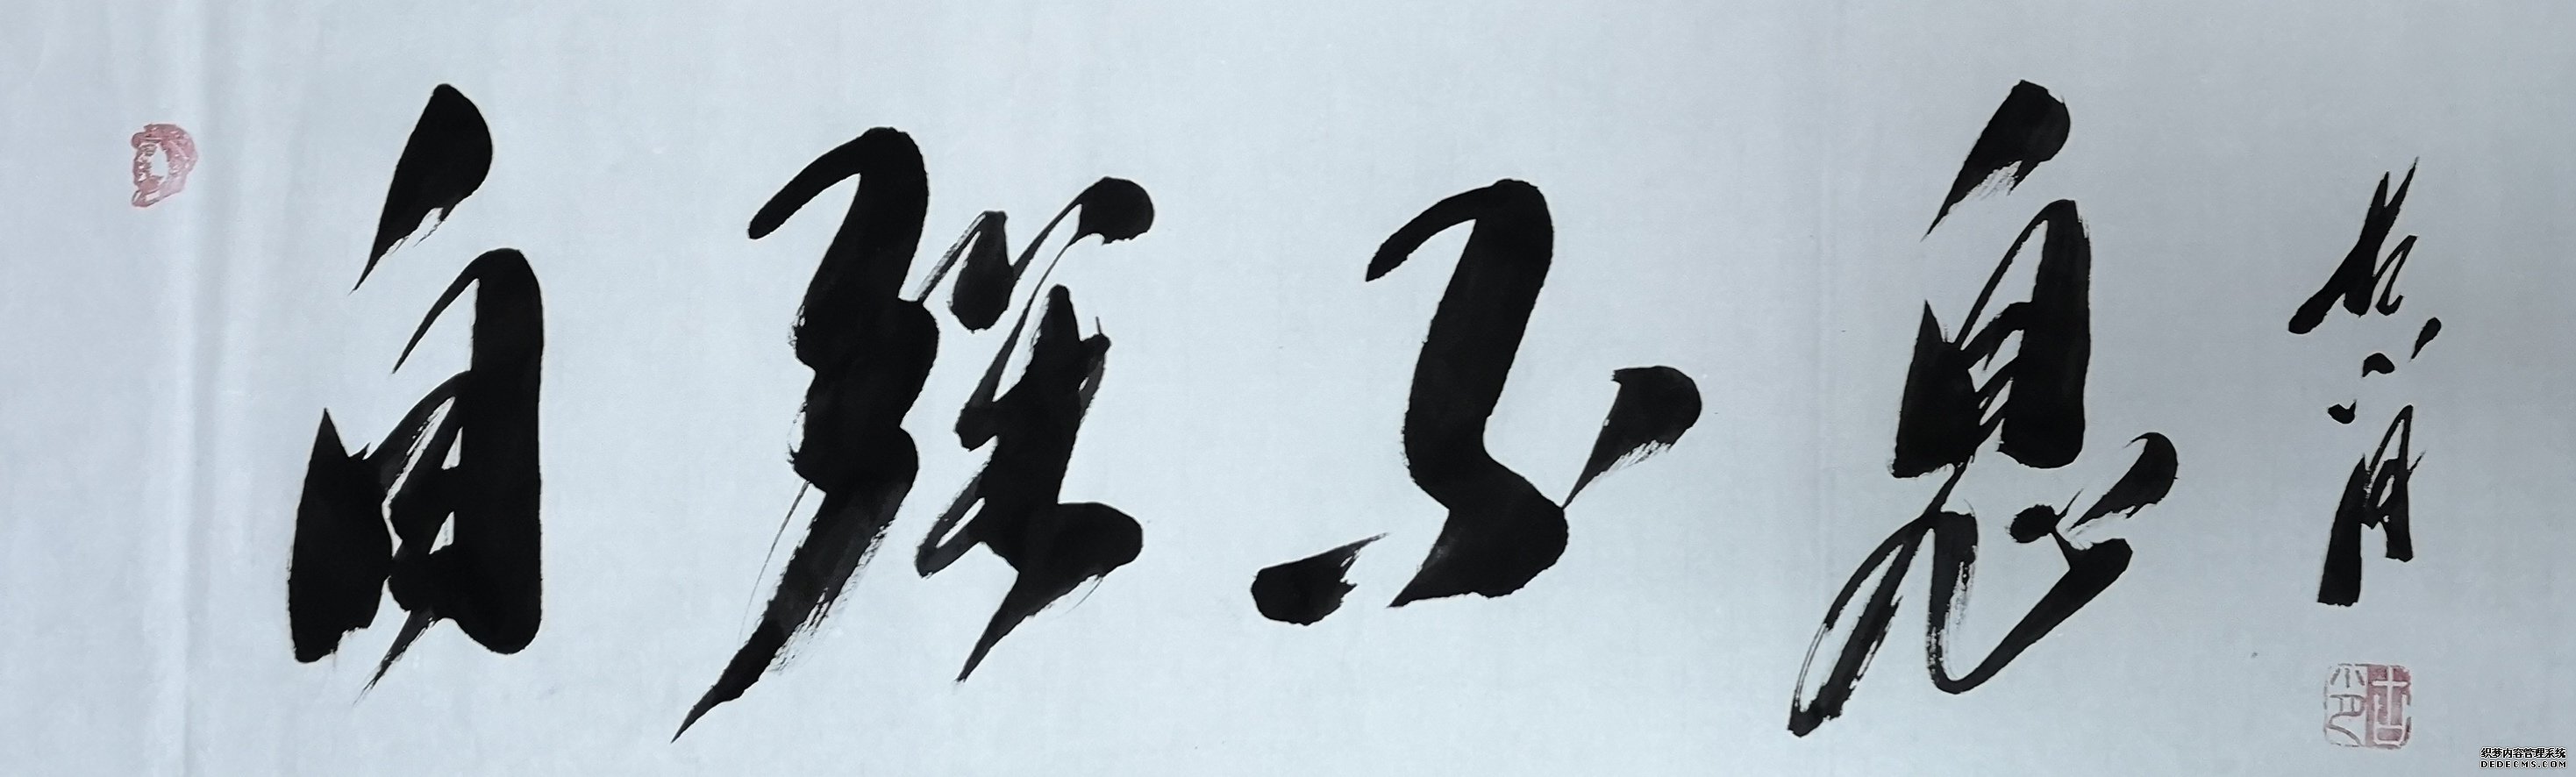 自强不息
织梦内容管理系统
DEDECMS.COM